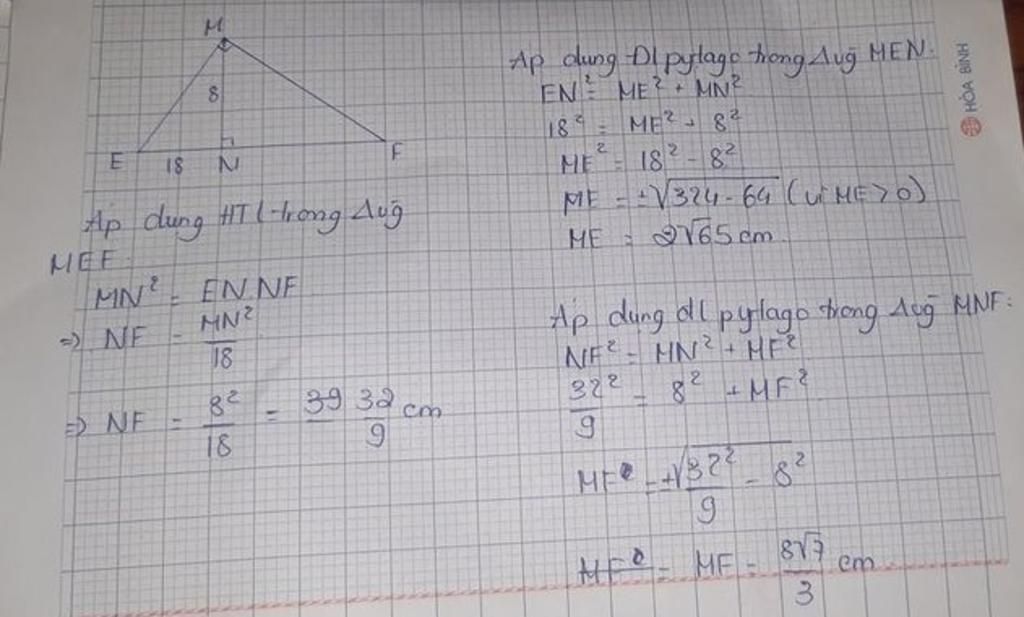 M
8
E 18 N F
Áp dụng HTL trong Δvg
MEF:
MN² = EN.NF
⇒ NF = MN²/18
⇒ NF = 8²/18 = 32/9 cm
Áp dụng Đl pytago trong Δvg MEN:
EN² = ME² + MN²
18² = ME² + 8²
ME² = 18² - 8²
ME = ±√324-64 (vì ME>0)
ME = 2√65 cm.
Áp dụng đl pytago trong Δvg MNF:
NF² = MN² + MF²
32²/9 = 8² + MF²
MF = ±√32²/9 - 8²
MF = 8√7/3 cm
HÒA BÌNH